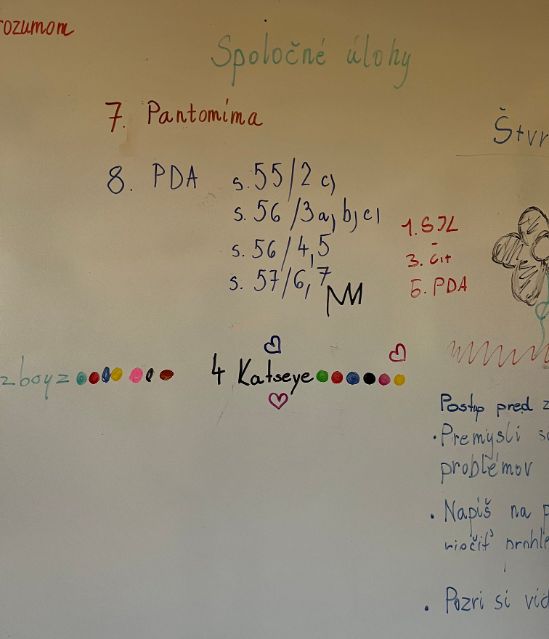 rozumom
Spoločné úlohy
7. Pantomíma
8. PDA s. 55/2 c)
s. 56/3a, b, c)
s. 56/4,5
s. 57/6,7
Štvr
1. SJL
3. čít
5. PDA
zboyz
4 Katseye
Postup pred z
• Premysli so
problémov
• Napíš na p
riočiť
• Pozri si vid